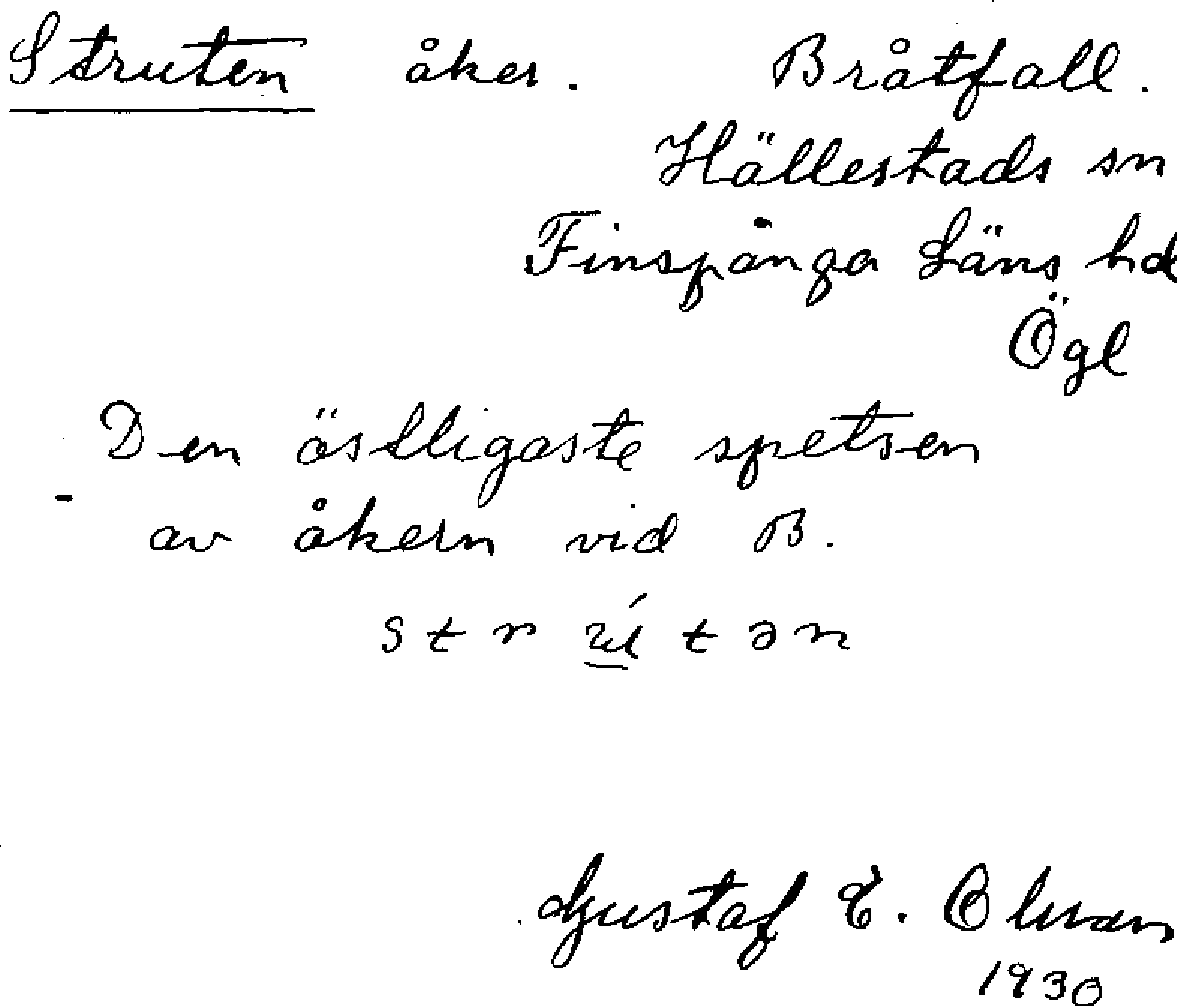 Struten åker. Bråtfall.
Hällestads sn
Finspånga Läns hd
Ögl
Den östligaste spetsen
av åkern vid B.
str út ən
Gustaf E.
1930